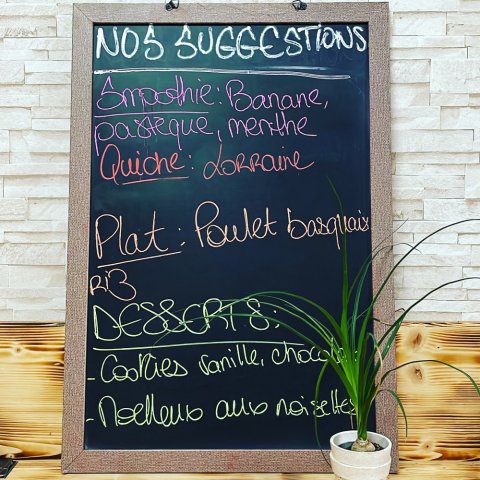 NOS SUGGESTIONS
Smoothie: Banane,
pastèque, menthe
Quiche: Lorraine
Plat: Poulet basquais
RiZ
DESSERTS:
- Cookies vanille, chocola
- Moelleux aux noisettes